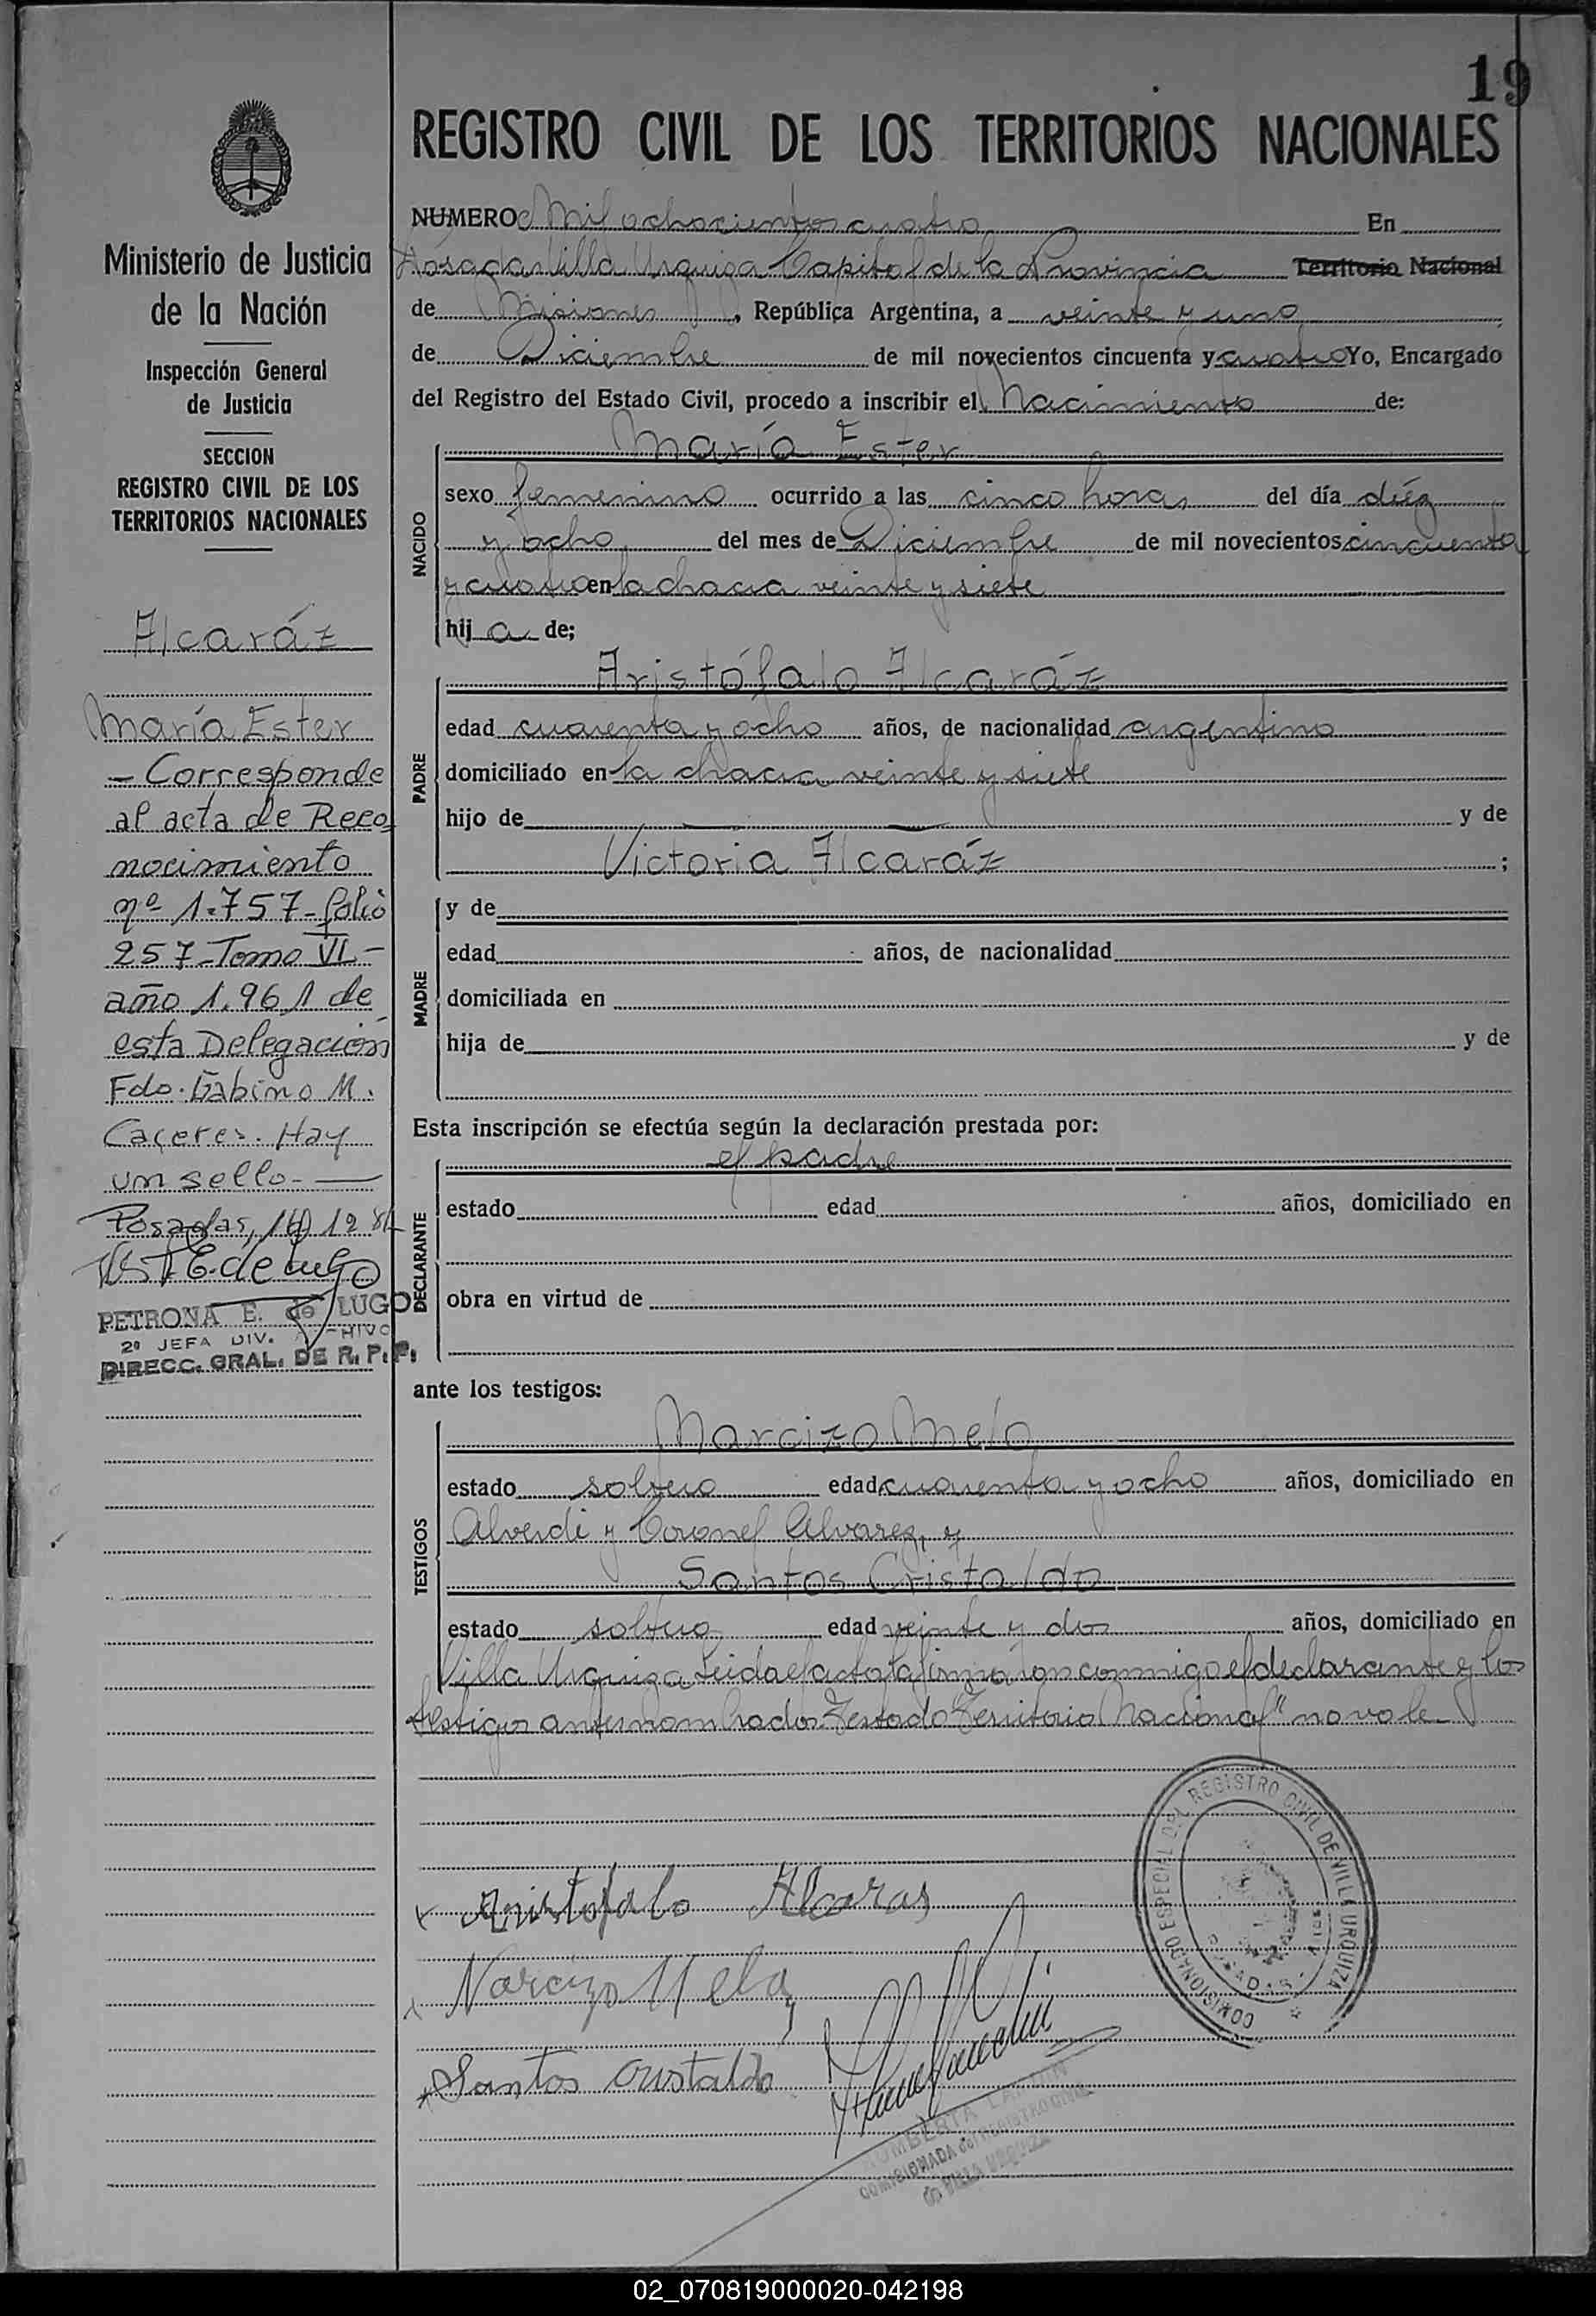 19
REGISTRO CIVIL DE LOS TERRITORIOS NACIONALES
Ministerio de Justicia
de la Nación
Inspección General
de Justicia
SECCION
REGISTRO CIVIL DE LOS
TERRITORIOS NACIONALES
Alcaráz
María Ester
- Corresponde
al acta de Reco
nocimiento
nº 1.757 - folio
257 - Tomo VI -
año 1.961 de
esta Delegación
Fdo. Gabino M.
Caceres. Hay
un sello. -
Posadas,
E. de Lugo
PETRONA E. de LUGO
2º JEFA DIV.
DIRECC. GRAL. DE R. P. P.
NUMERO Mil ochocientos cuatro En
Posadas Villa Urquiza Capital de la Provincia Territorio Nacional
de Misiones, República Argentina, a veinte y uno
de Diciembre de mil novecientos cincuenta y cuatro Yo, Encargado
del Registro del Estado Civil, procedo a inscribir el Nacimiento de:
NACIDO
María Ester
sexo femenino ocurrido a las cinco horas del día diéz
y ocho del mes de Diciembre de mil novecientos cincuenta
y cuatro en la chacra veinte y siete
hij a de;
PADRE
Aristófalo Alcaráz
edad cuarenta y ocho años, de nacionalidad argentino
domiciliado en la chacra veinte y siete
hijo de y de
Victoria Alcaráz ;
MADRE
y de
edad años, de nacionalidad
domiciliada en
hija de y de
Esta inscripción se efectúa según la declaración prestada por:
DECLARANTE
el padre
estado edad años, domiciliado en
obra en virtud de
ante los testigos:
TESTIGOS
Narcizo Melo
estado soltero edad cuarenta y ocho años, domiciliado en
Alverdi y Coronel Alvarez, y
Santos Cristaldo
estado soltero edad veinte y dos años, domiciliado en
Villa Urquiza Leida el acta la firmaron conmigo el declarante y los
testigos antes nombrados Testado "Territorio Nacional" no vale.
x Aristofalo Alcaras
x Narcizo Melo
x Santos Cristaldo
COMISIONADO ESPECIAL DEL REGISTRO CIVIL DE VILLA URQUIZA
POSADAS
COMISIONADA del REGISTRO CIVIL
de VILLA URQUIZA
02_070819000020-042198